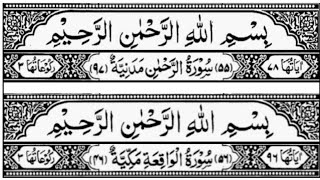 بِسْمِ اللهِ الرَّحْمٰنِ الرَّحِيْمِ
اٰيَاتُهَا ٧٨ (٥٥) سُوْرَةُ الرَّحْمٰنِ مَدَنِيَّةٌ (٩٧) رُكُوْعَاتُهَا ٣
بِسْمِ اللهِ الرَّحْمٰنِ الرَّحِيْمِ
اٰيَاتُهَا ٩٦ (٥٦) سُوْرَةُ الْوَاقِعَةِ مَكِّيَّةٌ (٤٦) رُكُوْعَاتُهَا ٣